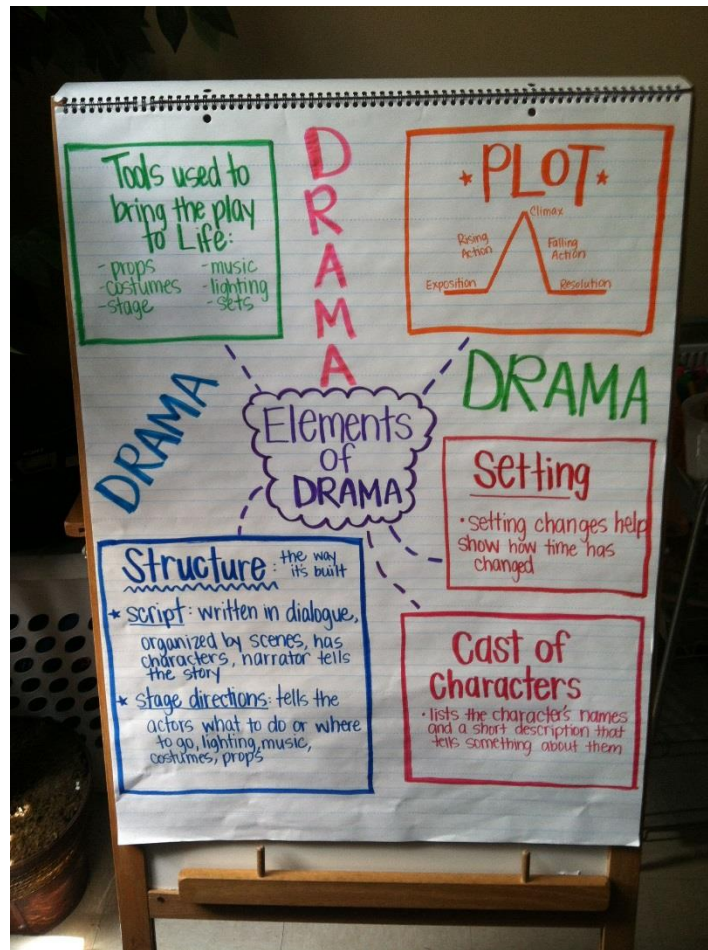 Tools used to
bring the play
to Life:
-props
-costumes
-stage
-music
-lighting
-sets
DRAMA
*PLOT*
Climax
Rising
Action
Falling
Action
Exposition
Resolution
DRAMA
DRAMA
Elements
of
DRAMA
Setting
•setting changes help
show how time has
changed
Structure: the way
it's built
★ script: written in dialogue,
organized by scenes, has
characters, narrator tells
the story
★ stage directions: tells the
actors what to do or where
to go, lighting, music,
costumes, props
Cast of
Characters
•lists the character's names
and a short description that
tells something about them